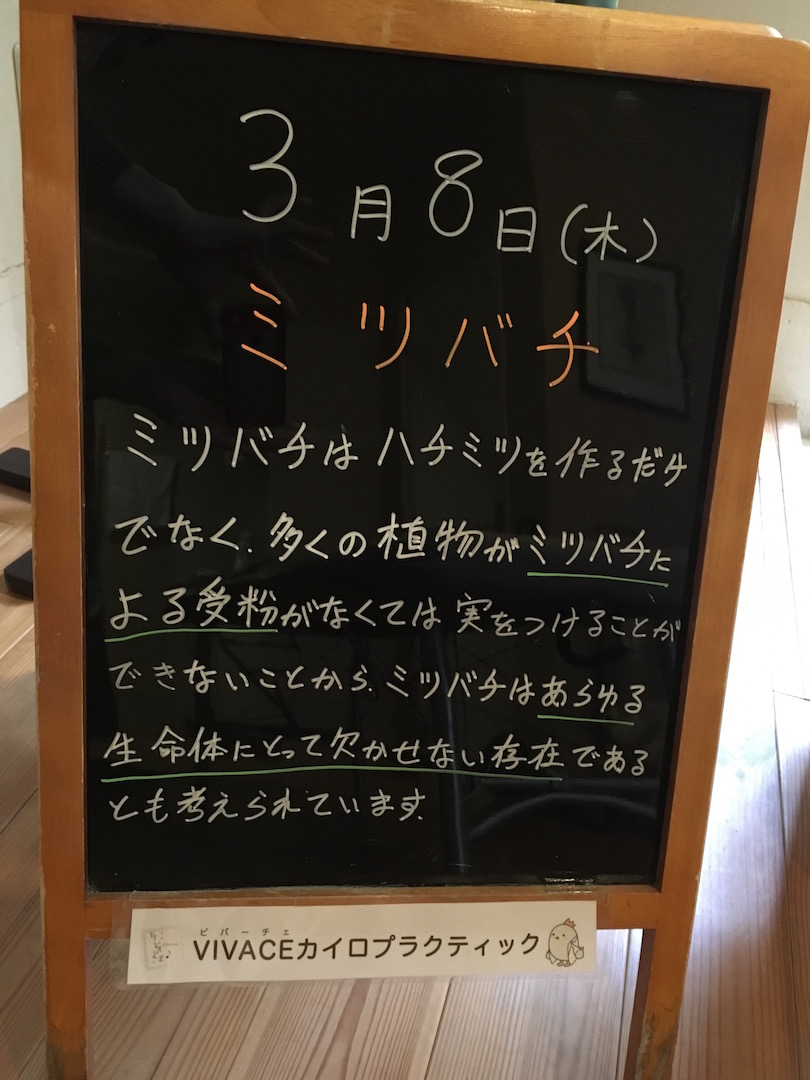 3月8日(木)
ミツバチ
ミツバチはハチミツを作るだけ
でなく、多くの植物がミツバチに
よる受粉がなくては実をつけることが
できないことから、ミツバチはあらゆる
生命体にとって欠かせない存在である
とも考えられています。
ビバーチェ
VIVACEカイロプラクティック